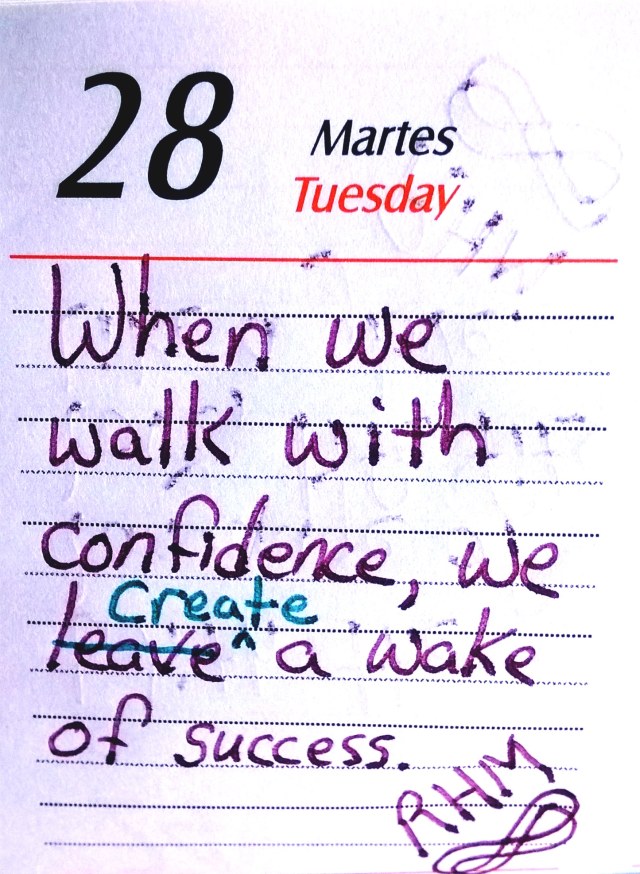 28
Martes
Tuesday
When we
walk with
confidence, we
Create
leave ^ a wake
of success.
RHM